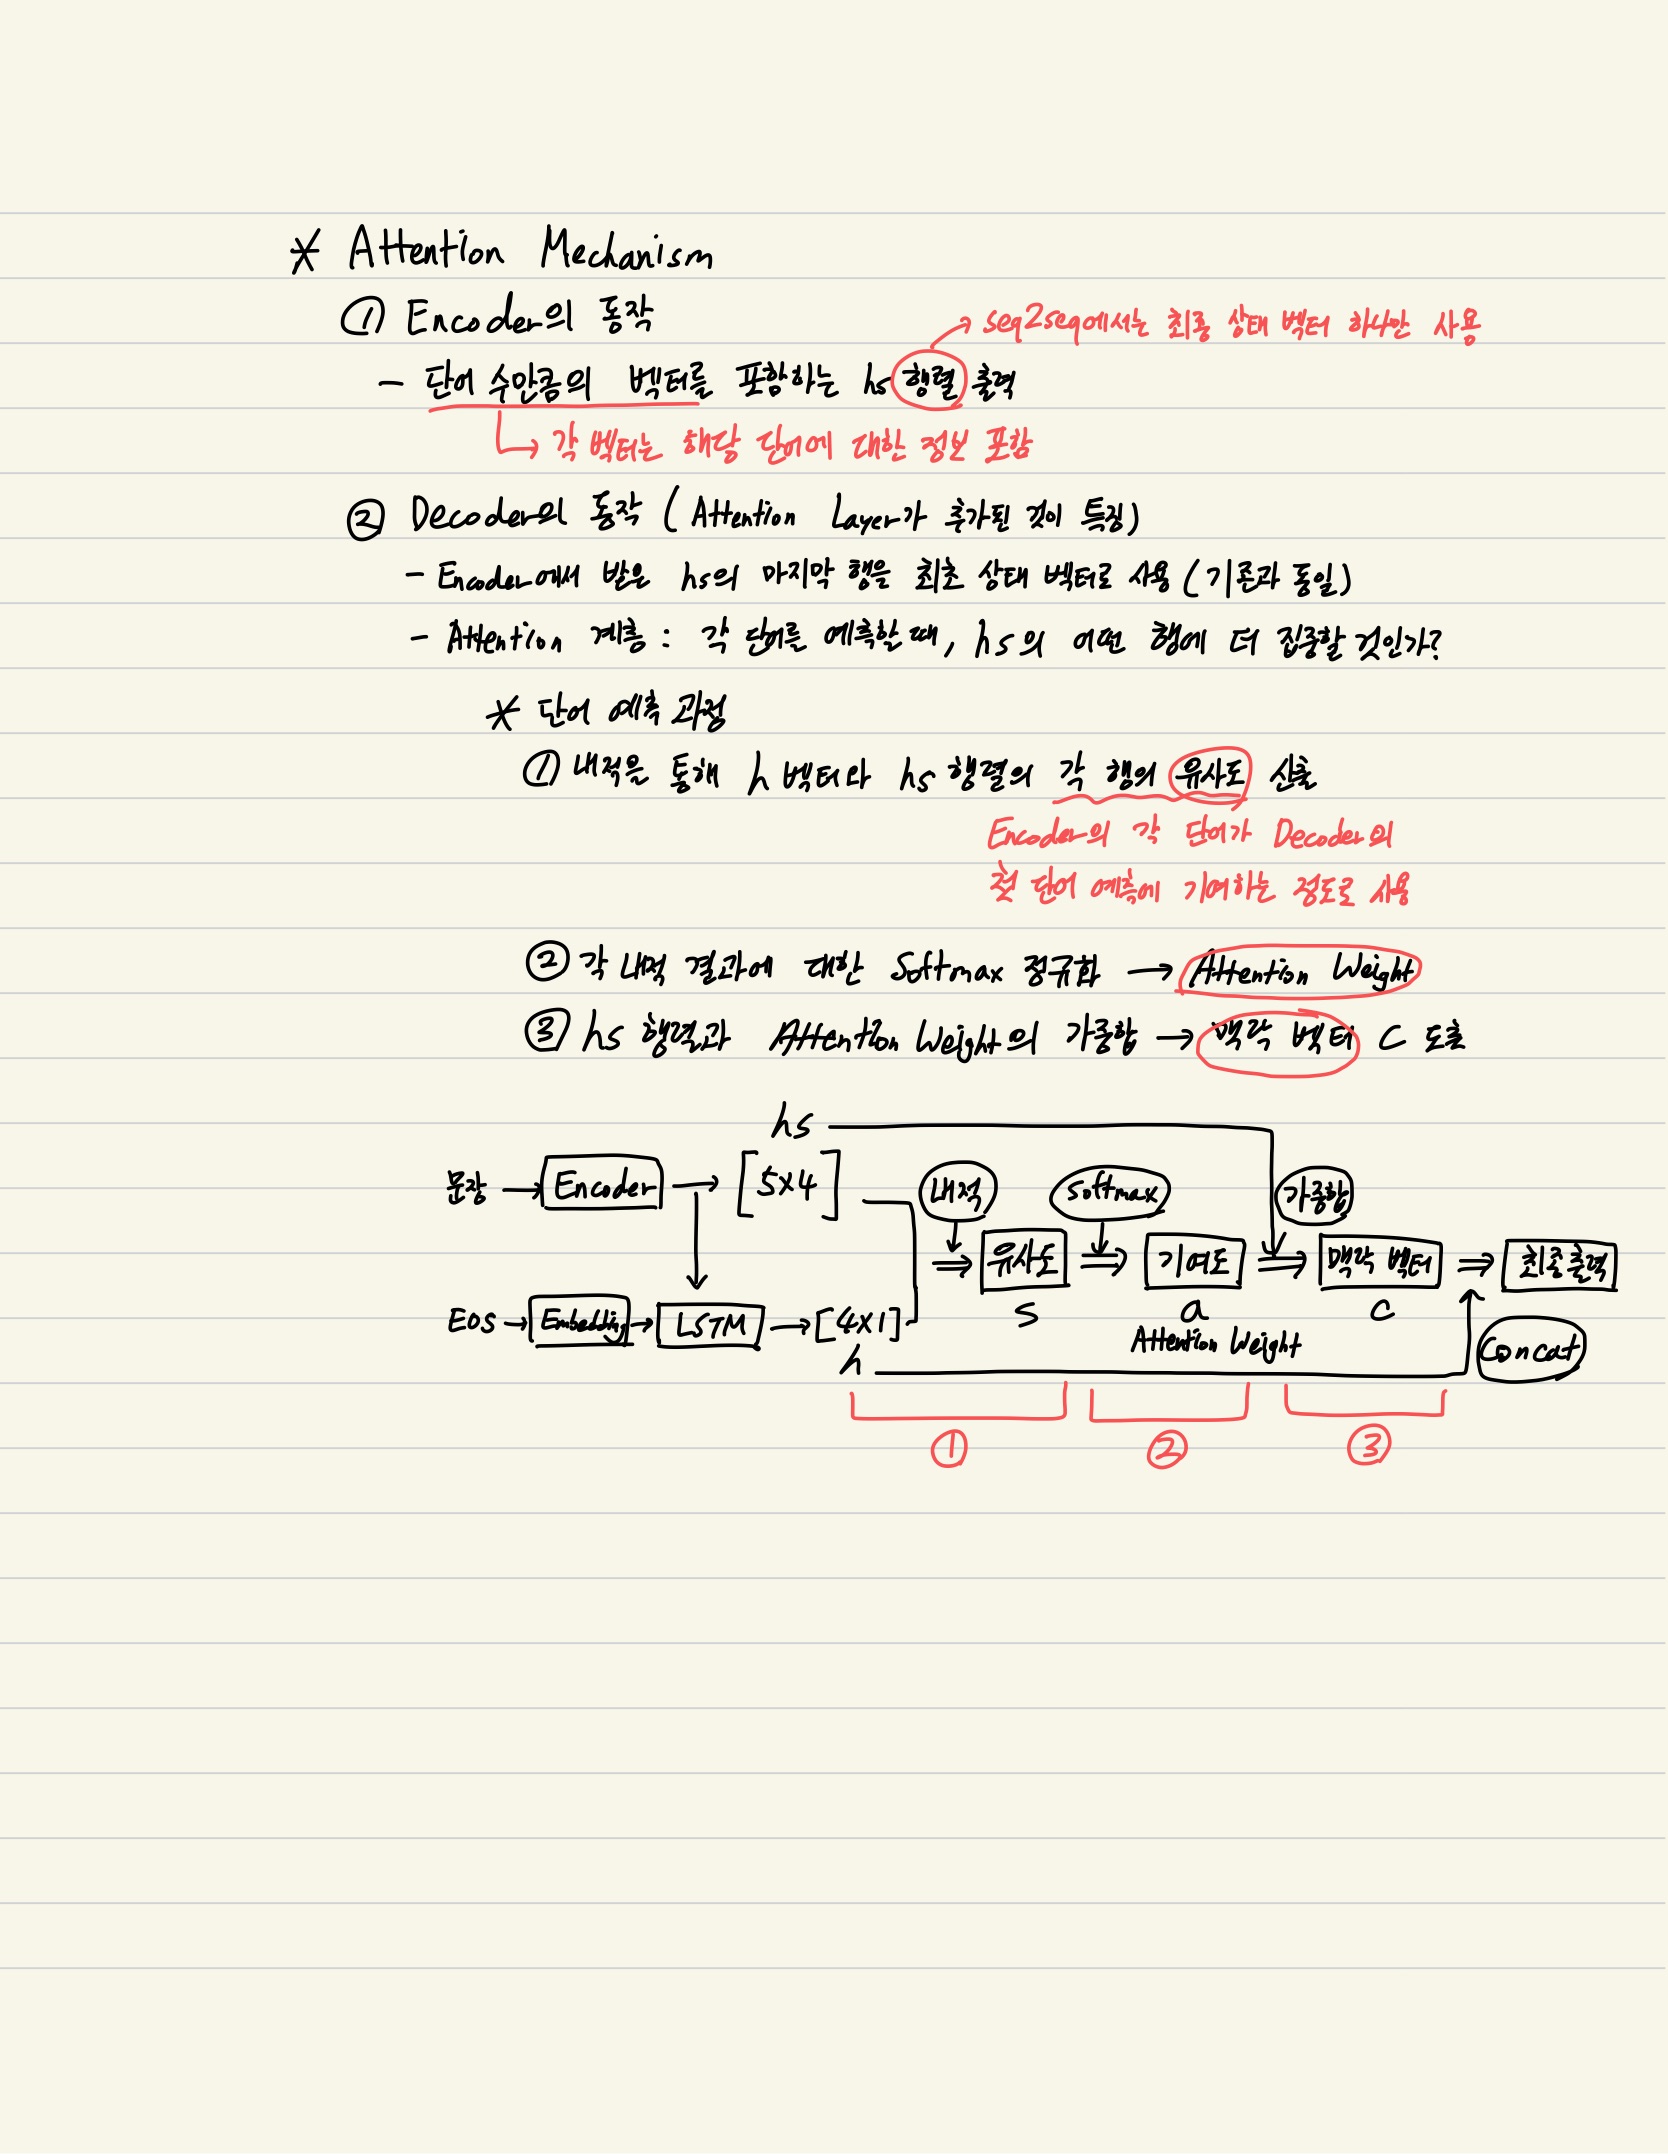 * Attention Mechanism
① Encoder의 동작
seq2seq에서는 최종 상태 벡터 하나만 사용
- 단어 수만큼의 벡터를 포함하는 hs 행렬 출력
각 벡터는 해당 단어에 대한 정보 포함
② Decoder의 동작 (Attention Layer가 추가된 것이 특징)
- Encoder에서 받은 hs의 마지막 행을 최초 상태 벡터로 사용 (기존과 동일)
- Attention 계층 : 각 단어를 예측할 때, hs의 어떤 행에 더 집중할 것인가?
* 단어 예측 과정
① 내적을 통해 h 벡터와 hs 행렬의 각 행의 유사도 산출
Encoder의 각 단어가 Decoder의
첫 단어 예측에 기여하는 정도로 사용
② 각 내적 결과에 대한 Softmax 정규화 → Attention Weight
③ hs 행렬과 Attention Weight의 가중합 → 맥락 벡터 C 도출
hs
문장 → Encoder → [5×4]
내적 softmax 가중합
⇒ 유사도 ⇒ 기여도 ⇒ 맥락 벡터 ⇒ 최종출력
S a C
EOS → Embedding → LSTM → [4×1]
Attention Weight
Concat
h
① ② ③